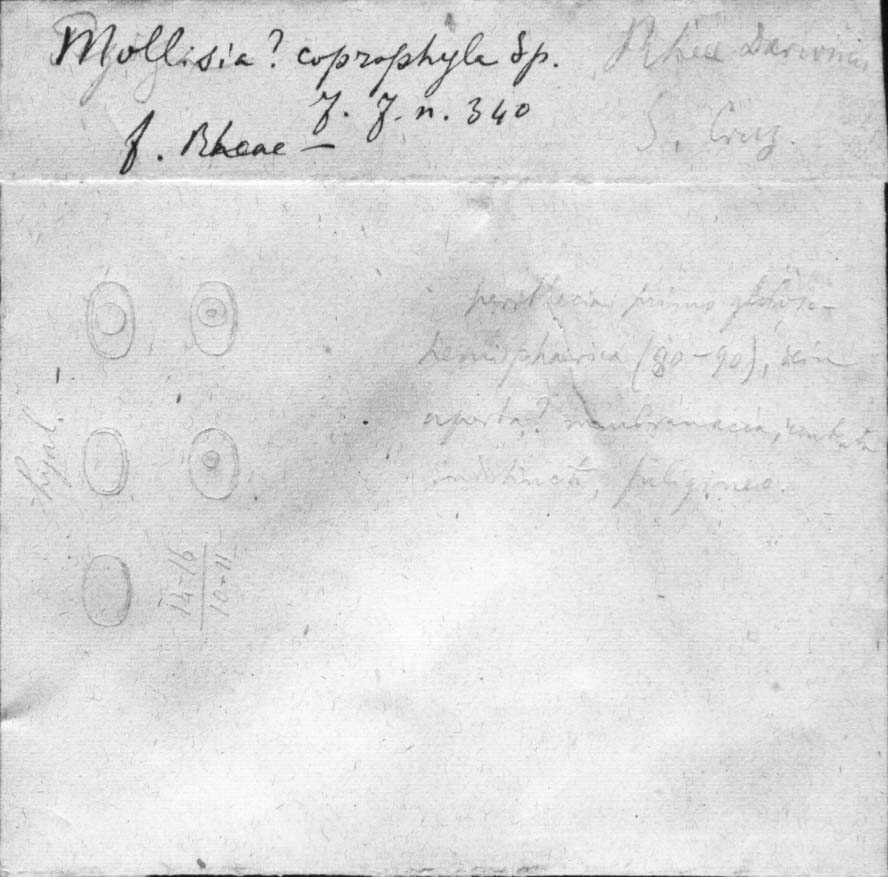 Mollisia? coprophyla Sp.
F. F. n. 340
f. Rheae —
Rhea Darwinii
S. Cruz.
perithecia primo globoso-
hemisphaerica (80-90),
aperta? membranacea,
indistincte, fuliginea.
hyal.
14-16
10-11